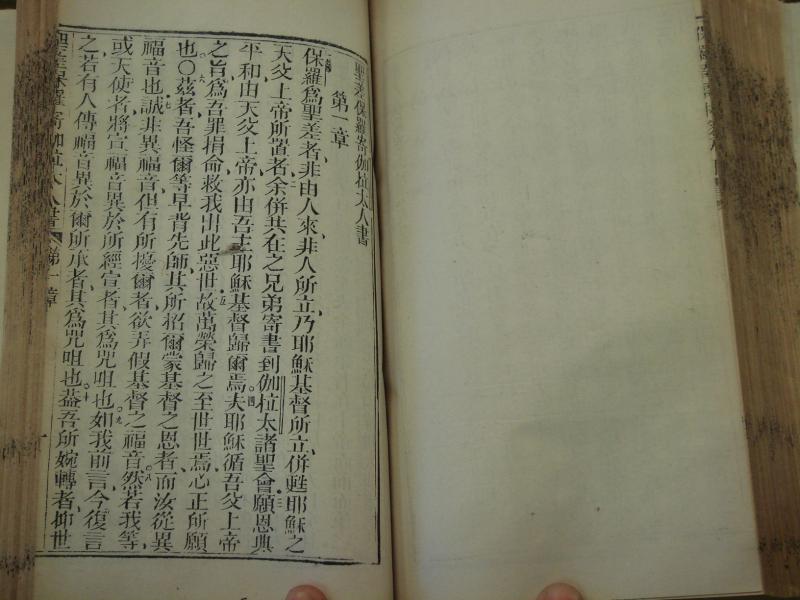 聖差保羅寄伽拉太人書
第一章
保羅爲聖差者、非由人來、非人所立、乃耶穌基督所立、併甦耶穌之
天父上帝所置者、余併共在之兄弟寄書到伽拉太諸聖會、願恩典
平和由天父上帝、亦由吾主耶穌基督歸爾焉、夫耶穌循吾父上帝
之旨、爲吾罪捐命、救我出此惡世、故萬榮歸之至世世焉、心正所願
也○茲者、吾怪爾等早背先師、其所招爾蒙基督之恩者、而汝從異
福音也、誠非異福音、但有所擾爾者、欲弄假基督之福音、然若我等、
或天使者、將宣福音異於所經宣者、其爲咒咀也、如我前言、今復言
之、若有人傳福音異於爾所承者、其爲咒咀也、葢吾所婉轉者、抑世
聖差保羅寄伽拉太人書 第一章